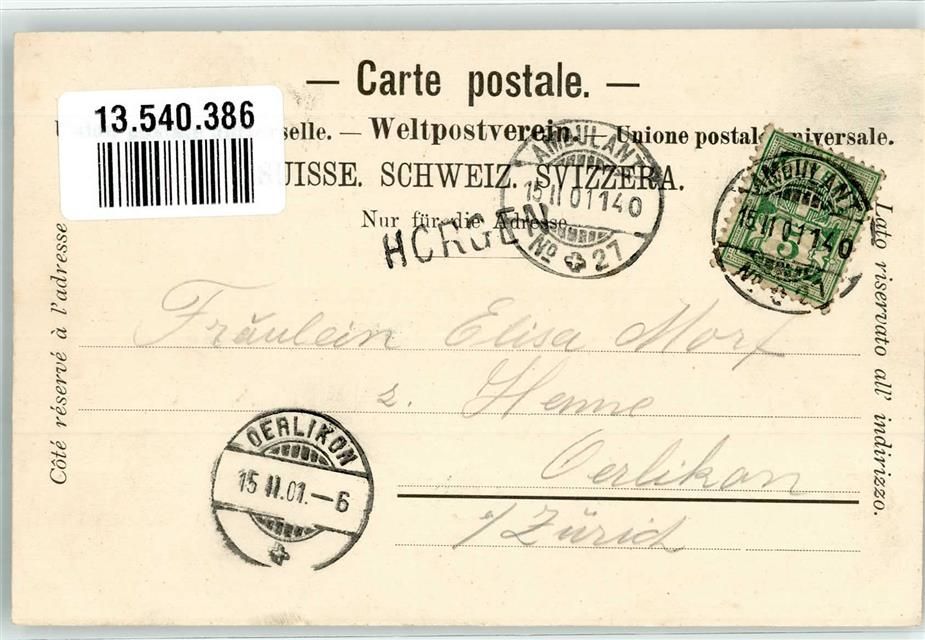 — Carte postale. —
13.540.386
selle. — Weltpostverein. — Unione postale universale.
SUISSE. SCHWEIZ. SVIZZERA.
Nur für die Adresse.
HORGEN
AMBULANT
15 II 01 11 40
No 27
AMBULANT
15 II 01 11 40
No 27
5
Côté réservé à l'adresse
Lato riservato all' indirizzo.
Fräulein Elisa Morf
z. Henne
Oerlikon
a/Zürich
OERLIKON
15 II.01.–6